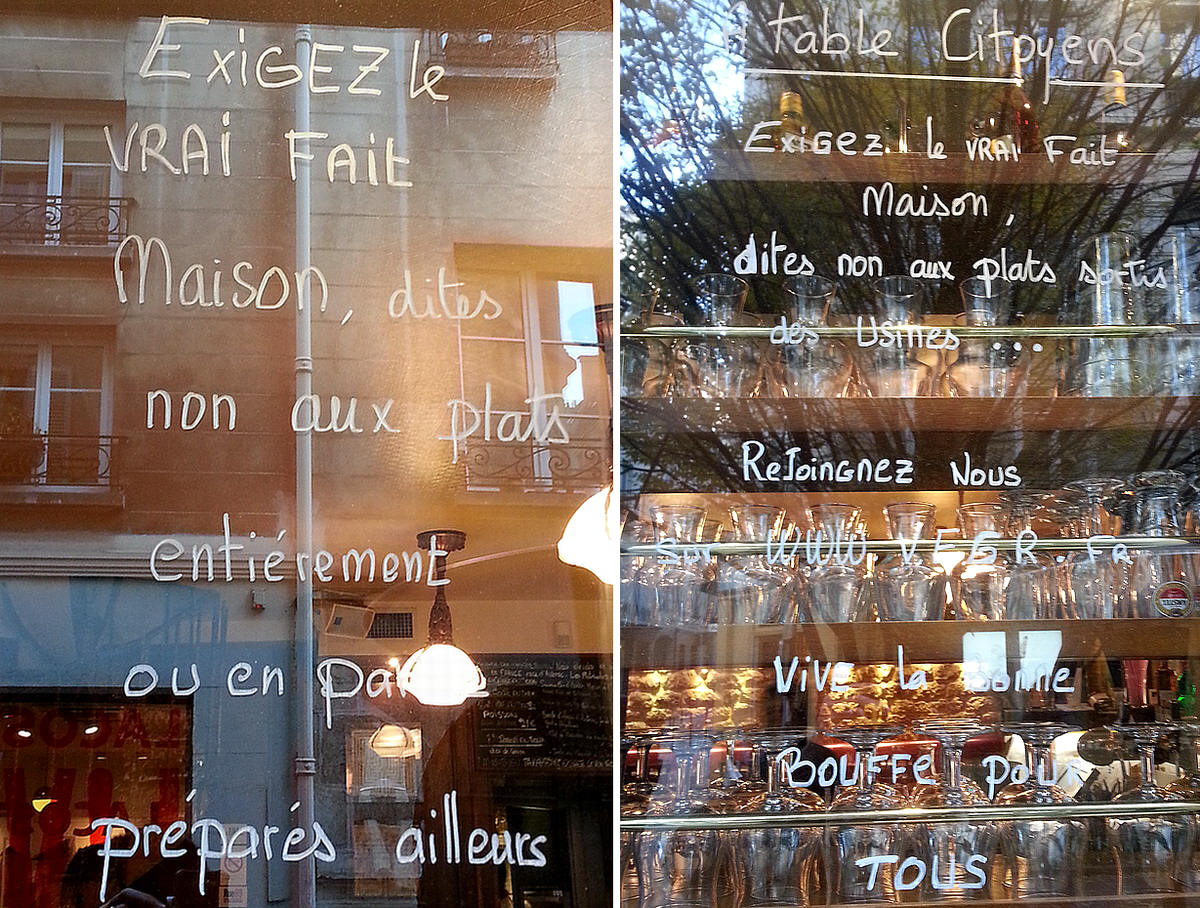 EXIGEZ le
VRAI FAit
Maison, dites
non aux plats
entiérement
ou en
préparés ailleurs
A table Citoyens
Exigez le VRAI Fait
Maison,
dites non aux plats sortis
des Usines ...
ReJoingnez Nous
sur WWW.VEGR.FR
Vive la Bonne
BOUFFE pour
TOUS